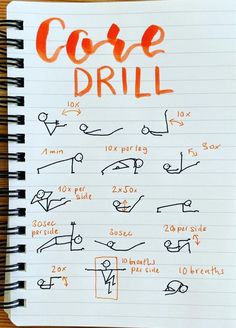 Core
DRILL
10x
10x
1 min
10x per leg
50x
10x per
side
2x50x
30sec
per side
30sec
20 per
side
20x
10 breaths
per side
10 breaths